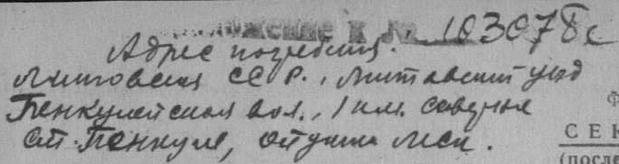 ложение к № 103078с
Адрес погребения.
Литовская ССР., Митавский уезд
Пенкулейская вол., 1 км. севернее
ст. Пенкуле, опушка леса.
Ф
СЕК
(после